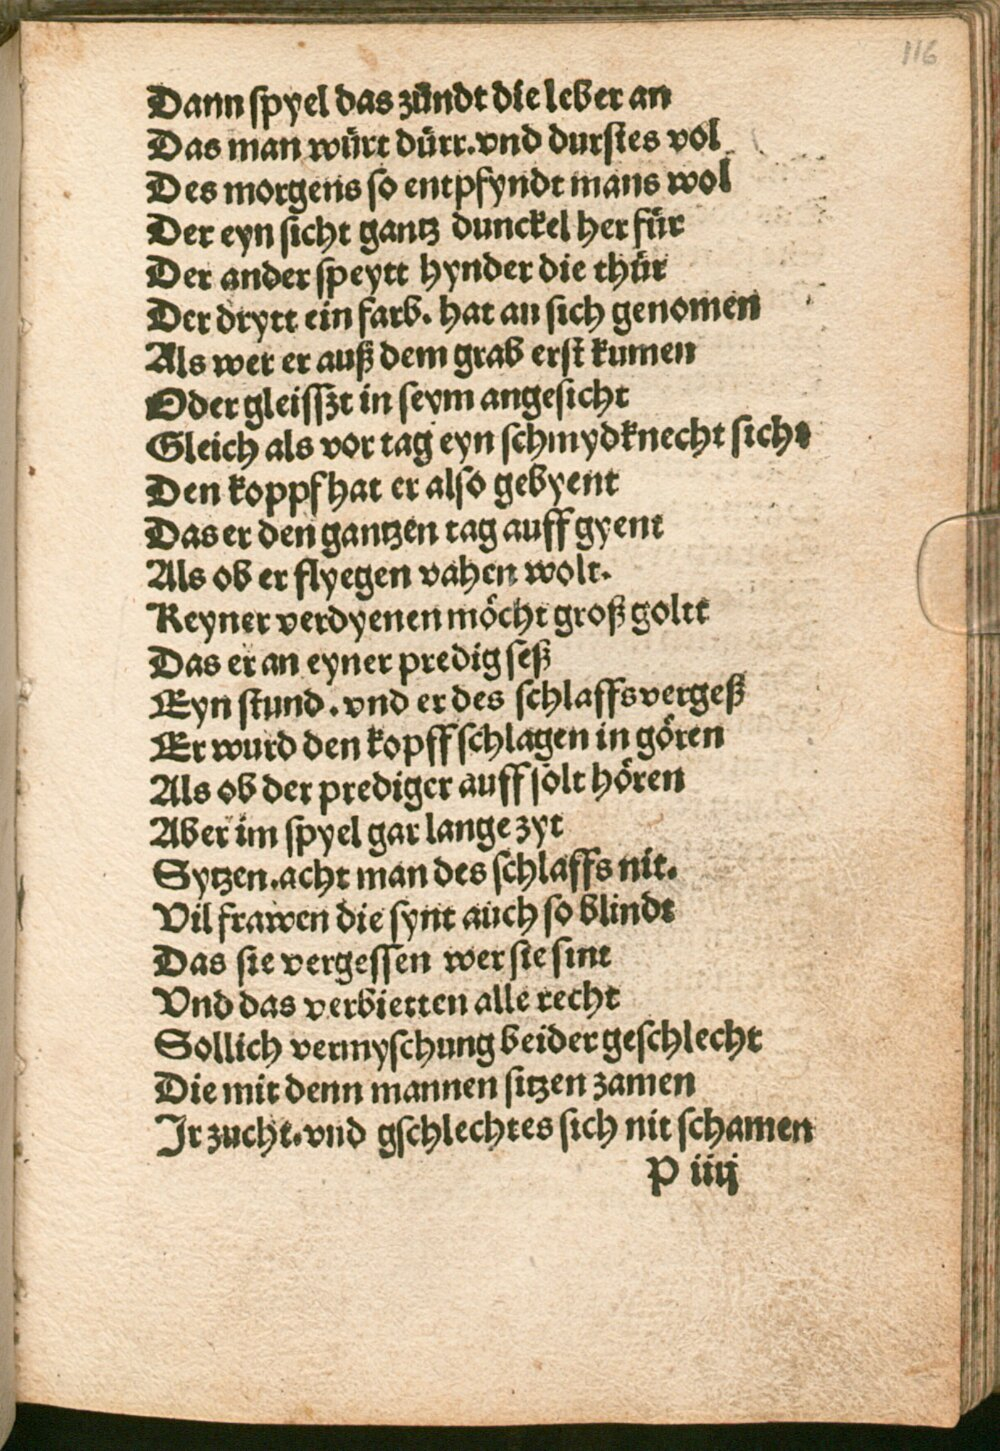 116
Dann spyel das zündt die leber an
Das man würt dürr. vnd durstes vol
Des morgens so entpfyndt mans wol
Der eyn sicht gantz dunckel her für
Der ander speytt hynder die thür
Der drytt ein farb. hat an sich genomen
Als wer er auß dem grab erst kumen
Oder gleisszt in seym angesicht
Gleich als vor tag eyn schmydknecht sicht
Den koppf hat er also gebyent
Das er den gantzen tag auff gyent
Als ob er flyegen vahen wolt.
Keyner verdyenen möcht groß goltt
Das er an eyner predig seß
Eyn stund. vnd er des schlaffs vergeß
Er wurd den kopff schlagen in gören
Als ob der prediger auff solt hören
Aber im spyel gar lange zyt
Sytzen. acht man des schlaffs nit.
Vil frawen die synt auch so blindt
Das sie vergessen wer sie sint
Vnd das verbietten alle recht
Sollich vermyschung beider geschlecht
Die mit denn mannen sitzen zamen
Ir zucht. vnd gschlechtes sich nit schamen
P iiij